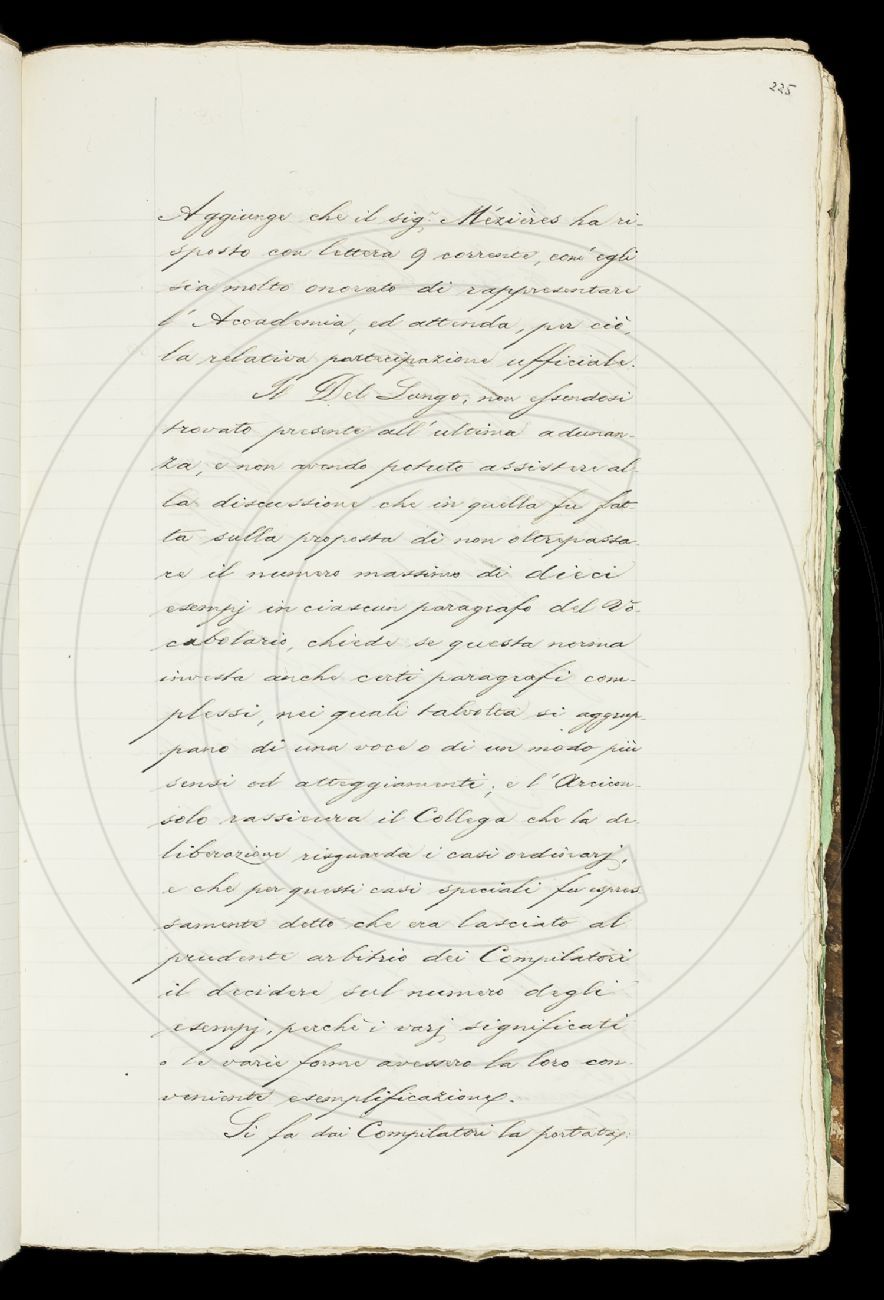 225
Aggiunge che il sigr Mézières ha ri-
sposto con lettera 9 corrente, com' egli
sia molto onorato di rappresentare
l' Accademia, ed attenda, per ciò,
la relativa partecipazione ufficiale.
Il Del Lungo, non essendosi
trovato presente all' ultima adunan-
za, e non avendo potuto assistere al-
la discussione che in quella fu fat-
ta sulla proposta di non oltrepassa-
re il numero massimo di dieci
esempj in ciascun paragrafo del Vo-
cabolario, chiede se questa norma
investa anche certi paragrafi com-
plessi, nei quali talvolta si aggrup-
pano di una voce o di un modo più
sensi ed atteggiamenti; e l' Arcicon-
solo rassicura il Collega che la de-
liberazione risguarda i casi ordinarj,
e che per questi casi speciali fu espres
samente detto che era lasciato al
prudente arbitrio dei Compilatori
il decidere sul numero degli
esempj, perchè i varj significati
o le varie forme avessero la loro con-
veniente esemplificazione.
Si fa dai Compilatori la portata: